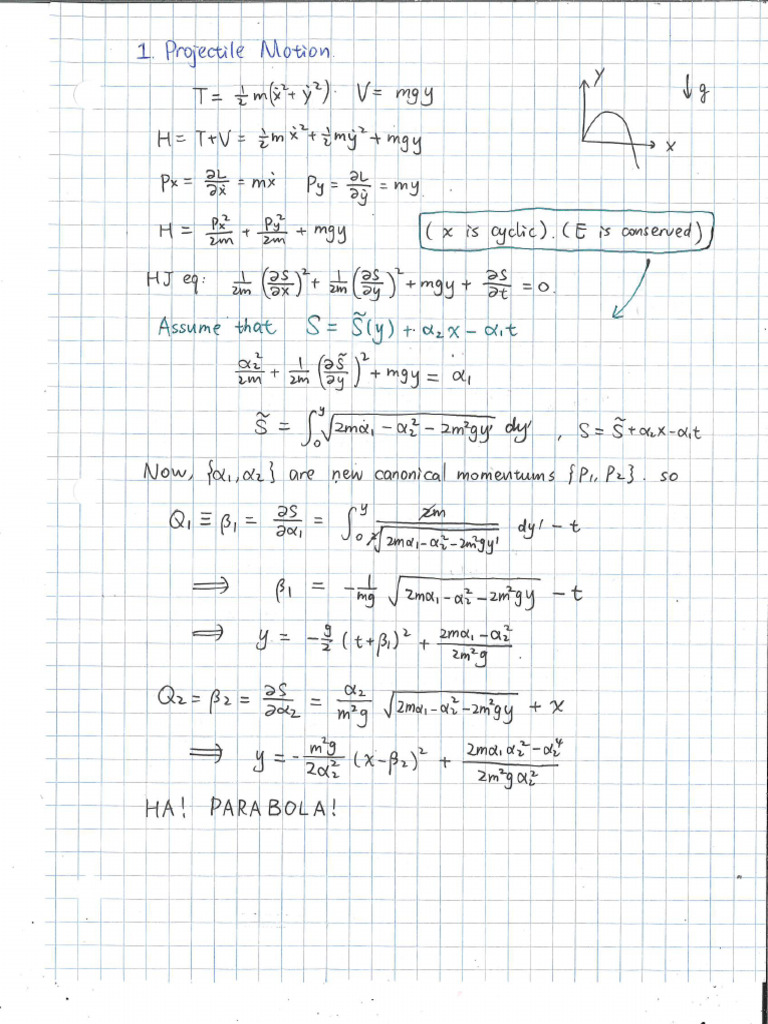 1. Projectile Motion.
T = ½ m(ẋ² + ẏ²). V = mgy
y ↓g
x
H = T+V = ½mẋ² + ½mẏ² + mgy
Px = ∂L/∂ẋ = mẋ Py = ∂L/∂ẏ = my.
H = Px²/2m + Py²/2m + mgy (x is cyclic). (E is conserved)
HJ eq: 1/2m (∂S/∂x)² + 1/2m (∂S/∂y)² + mgy + ∂S/∂t = 0.
Assume that S = S̃(y) + α₂x − α₁t
α₂²/2m + 1/2m (∂S̃/∂y)² + mgy = α₁
S̃ = ∫₀^y √(2mα₁ − α₂² − 2m²gy') dy' , S = S̃ + α₂x − α₁t
Now, {α₁, α₂} are new canonical momentums {P₁, P₂}. so
Q₁ ≡ β₁ = ∂S/∂α₁ = ∫₀^y 2m / 2√(2mα₁ − α₂² − 2m²gy') dy' − t
⟹ β₁ = −1/mg √(2mα₁ − α₂² − 2m²gy) − t
⟹ y = −g/2 (t+β₁)² + (2mα₁ − α₂²)/2m²g.
Q₂ = β₂ = ∂S/∂α₂ = α₂/m²g √(2mα₁ − α₂² − 2m²gy) + x
⟹ y = −m²g/2α₂² (x−β₂)² + (2mα₁α₂² − α₂⁴)/2m²gα₂²
HA! PARABOLA!